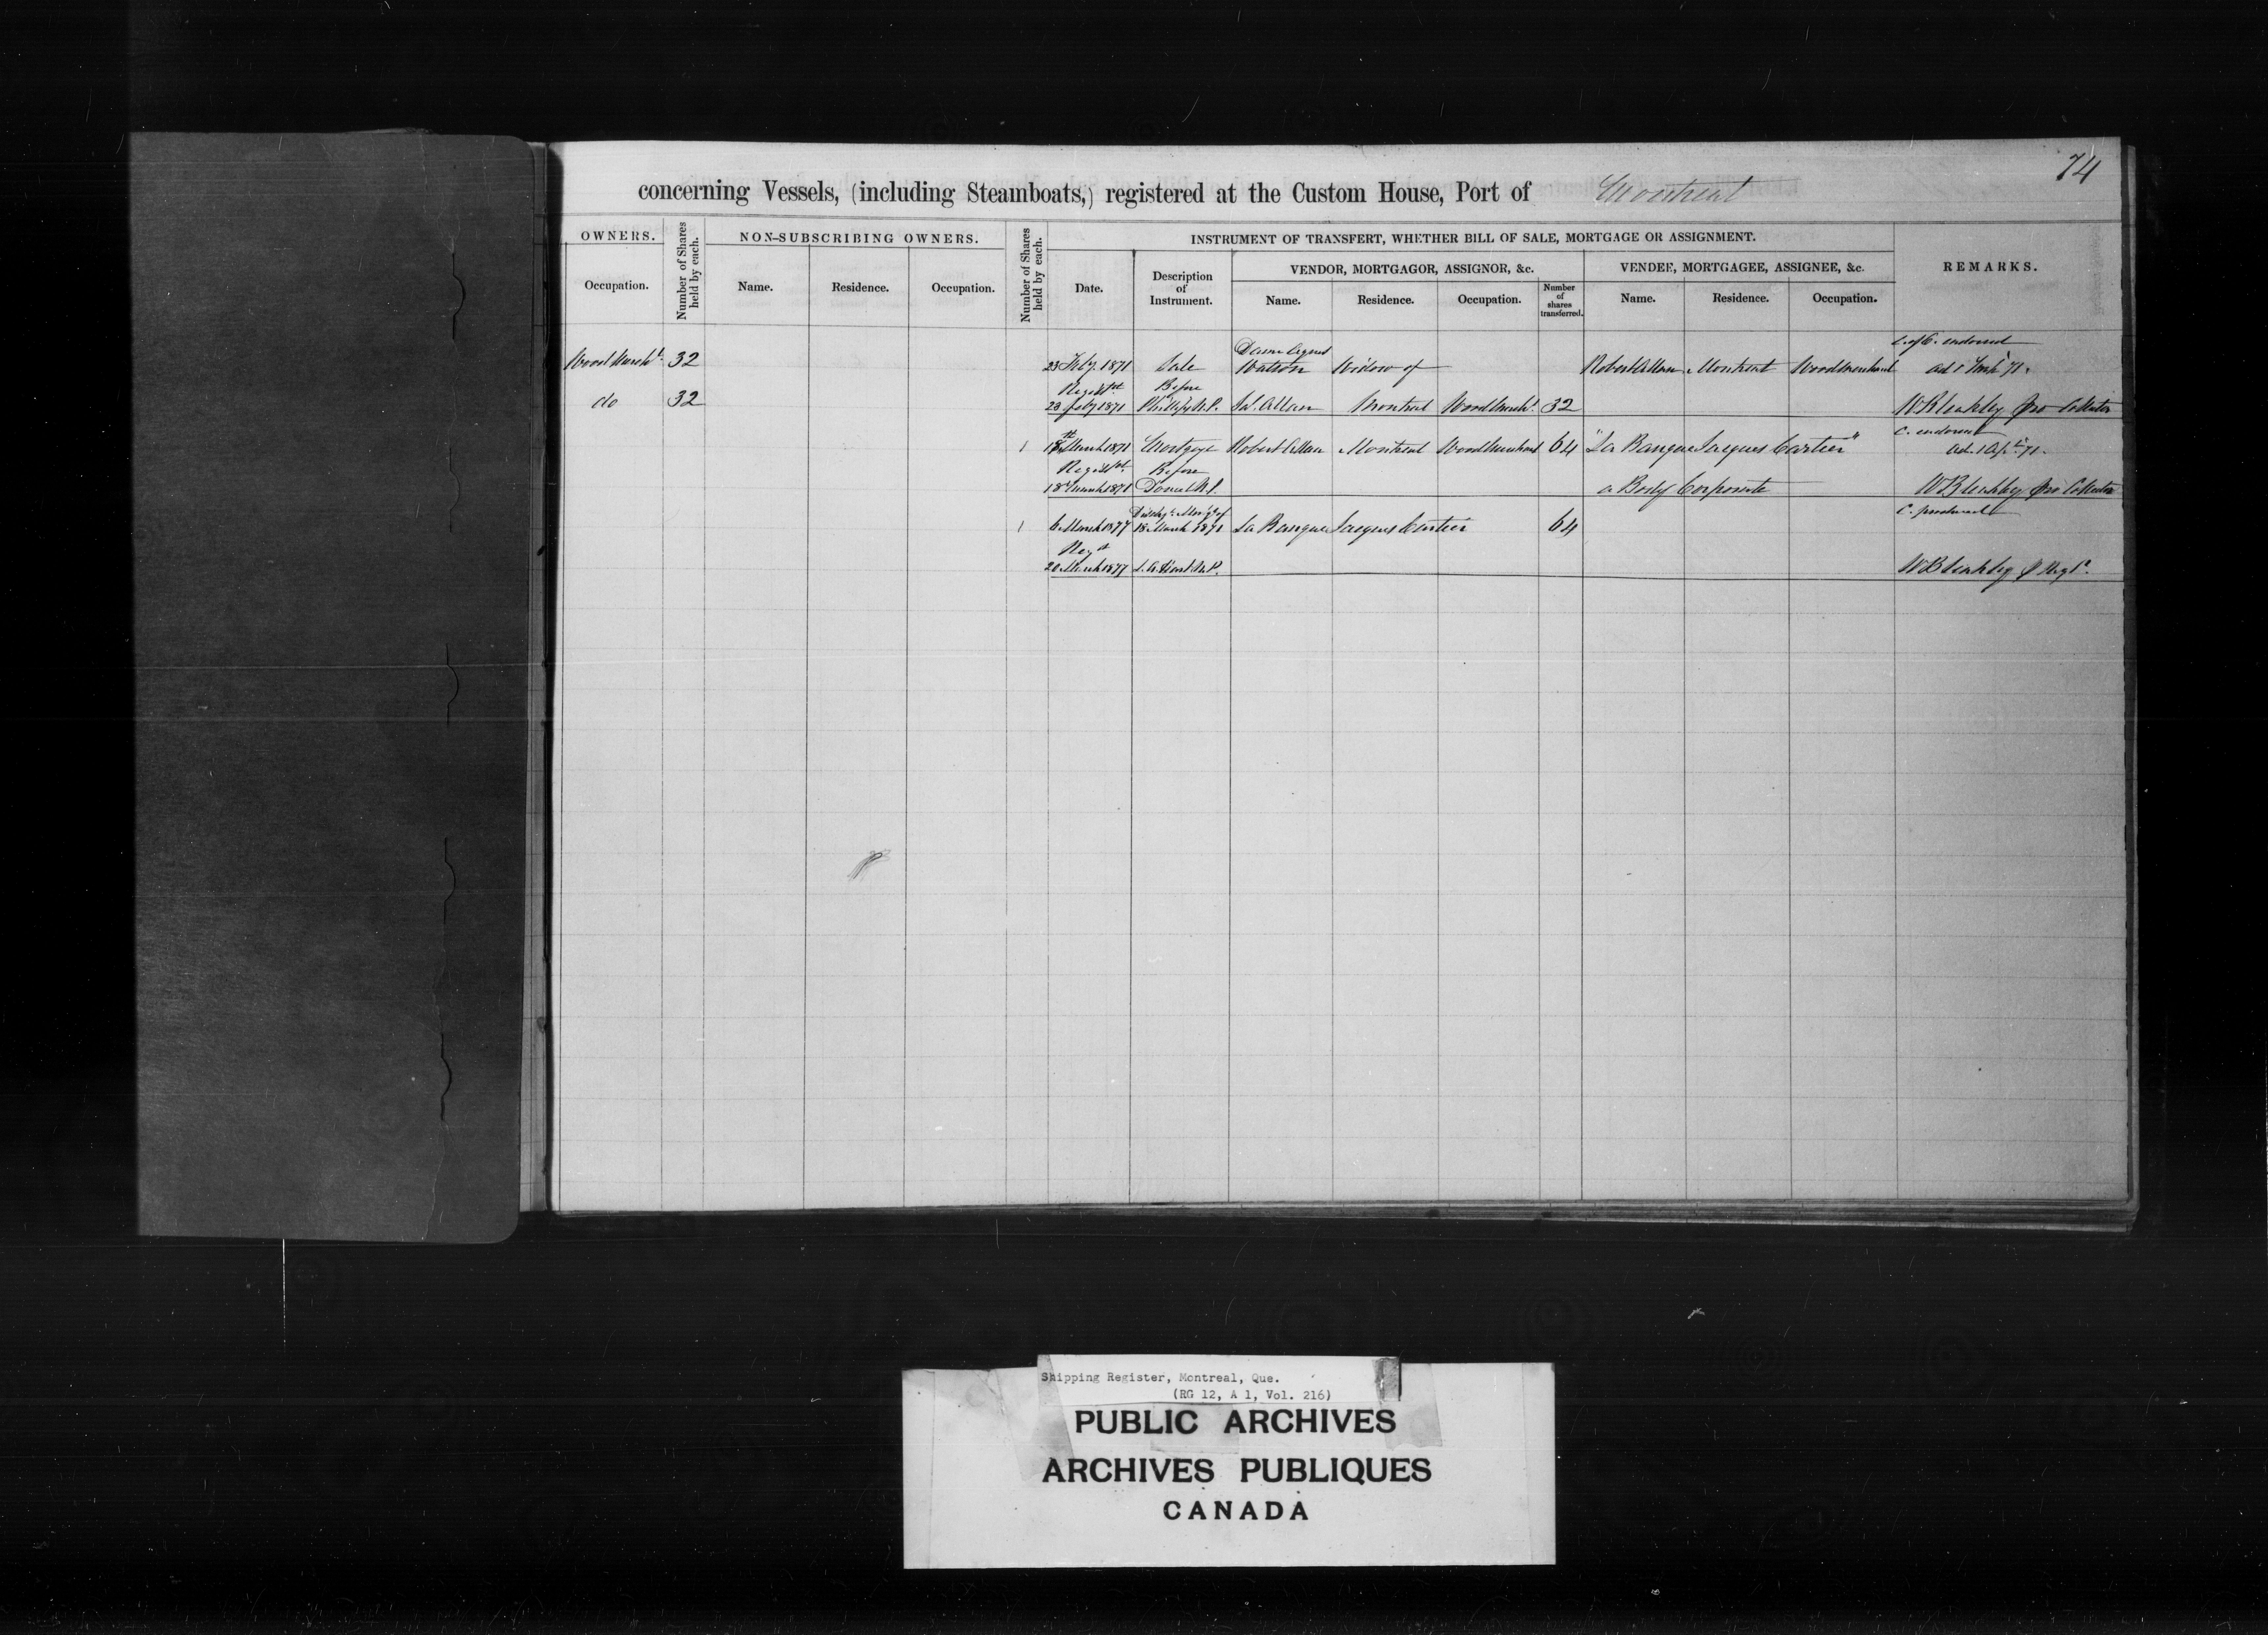 74
concerning Vessels, (including Steamboats,) registered at the Custom House, Port of Montreal
OWNERS.
Number of Shares held by each.
NON-SUBSCRIBING OWNERS.
Number of Shares held by each.
INSTRUMENT OF TRANSFERT, WHETHER BILL OF SALE, MORTGAGE OR ASSIGNMENT.
REMARKS.
Occupation.
Name.
Residence.
Occupation.
Date.
Description of Instrument.
VENDOR, MORTGAGOR, ASSIGNOR, &c.
VENDEE, MORTGAGEE, ASSIGNEE, &c.
Name.
Residence.
Occupation.
Number of shares transferred.
Name.
Residence.
Occupation.
Dame Agnes C. of C. endorsed
Wood Mercht. 32 23 Feby. 1871 Sale Watson Widow of Robert Allan Montreal Wood Merchant
Before
do 32 23 Feby 1871 N.P. Allan Montreal Wood Mercht. 32 W Bleakley pro Collector
C. endorsed
1 18th March 1871 Mortgage Robert Allan Montreal Wood Merchant 64 "La Banque Jacques Cartier"
Before
18 March 1871 N.P. a Body Corporate W Bleakley pro Collector
C. produced
1 6 March 1877 18 March 1871 La Banque Jacques Cartier 64
Regd
20 March 1877 N.P. W Bleakley
Shipping Register, Montreal, Que.
(RG 12, A 1, Vol. 216)
PUBLIC ARCHIVES
ARCHIVES PUBLIQUES
CANADA